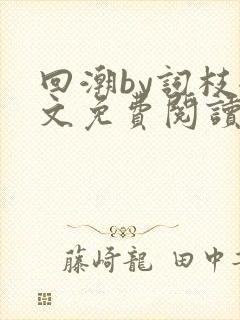 回潮by詞枝
文免費閱讀
藤崎龍 田中